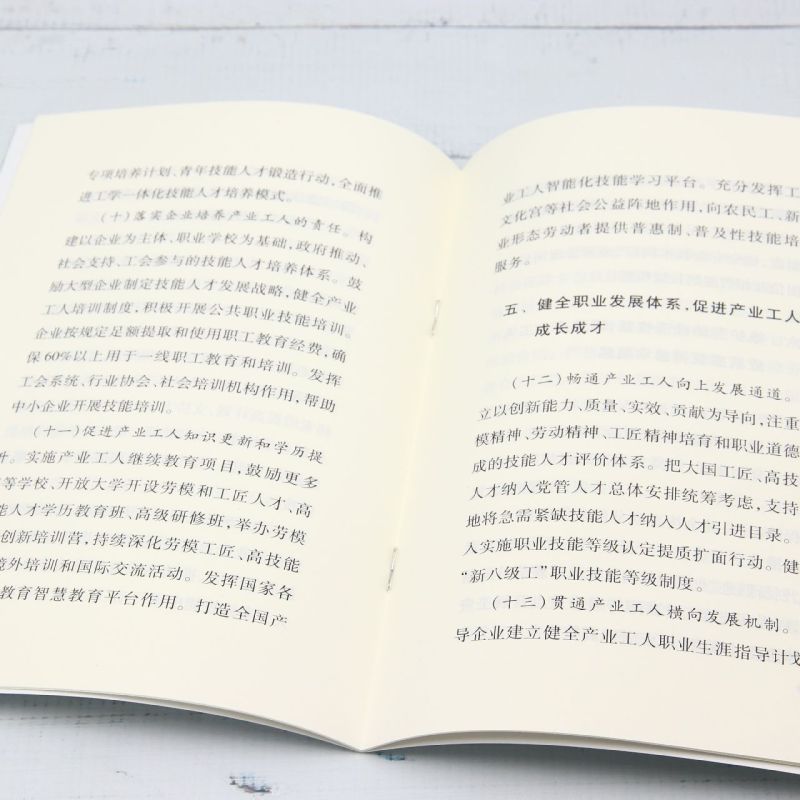 专项培养计划、青年技能人才锻造行动,全面推
进工学一体化技能人才培养模式。
(十)落实企业培养产业工人的责任。构
建以企业为主体、职业学校为基础,政府推动、
社会支持、工会参与的技能人才培养体系。鼓
励大型企业制定技能人才发展战略,健全产业
工人培训制度,积极开展公共职业技能培训。
企业按规定足额提取和使用职工教育经费,确
保60%以上用于一线职工教育和培训。发挥
工会系统、行业协会、社会培训机构作用,帮助
中小企业开展技能培训。
(十一)促进产业工人知识更新和学历提
升。实施产业工人继续教育项目,鼓励更多
等学校、开放大学开设劳模和工匠人才、高
能人才学历教育班、高级研修班,举办劳模
创新培训营,持续深化劳模工匠、高技能
境外培训和国际交流活动。发挥国家各
教育智慧教育平台作用。打造全国产
业工人智能化技能学习平台。充分发挥工
文化宫等社会公益阵地作用,向农民工、新
业形态劳动者提供普惠制、普及性技能培
服务。
五、健全职业发展体系,促进产业工人
成长成才
(十二)畅通产业工人向上发展通道。
立以创新能力、质量、实效、贡献为导向,注重
模精神、劳动精神、工匠精神培育和职业道德
成的技能人才评价体系。把大国工匠、高技
人才纳入党管人才总体安排统筹考虑,支持
地将急需紧缺技能人才纳入人才引进目录。
入实施职业技能等级认定提质扩面行动。健
“新八级工”职业技能等级制度。
(十三)贯通产业工人横向发展机制。
导企业建立健全产业工人职业生涯指导计划